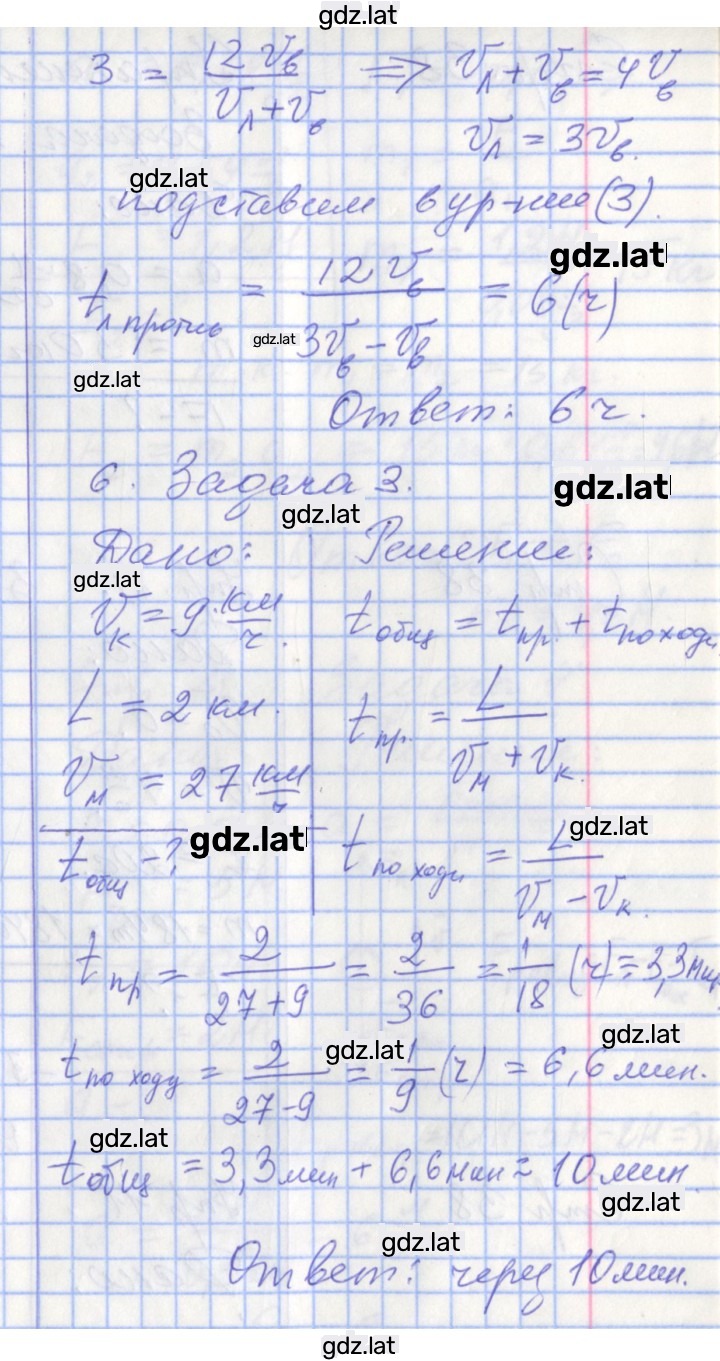 gdz.lat
3 = 12 Vв / (Vл + Vв) => Vл + Vв = 4Vв
Vл = 3Vв.
gdz.lat
подставим в ур-ние (3).
gdz.lat
tл против = 12 Vв / (3Vв - Vв) = 6 (ч)
gdz.lat
gdz.lat
Ответ: 6 ч.
6. Задача 3.
gdz.lat
gdz.lat
Дано: Решение:
gdz.lat
Vк = 9 км/ч. tобщ = tпр. + tпо ходу.
L = 2 км. tпр. = L / (Vм + Vк.)
Vм = 27 км/ч
gdz.lat
gdz.lat
tобщ - ? tпо ходу = L / (Vм - Vк.)
tпр = 2 / (27 + 9) = 2/36 = 1/18 (ч) = 3,3 мин.
gdz.lat
gdz.lat
tпо ходу = 2 / (27 - 9) = 1/9 (ч) = 6,6 мин.
gdz.lat
tобщ = 3,3 мин + 6,6 мин ≈ 10 мин.
gdz.lat
gdz.lat
Ответ: через 10 мин.
gdz.lat